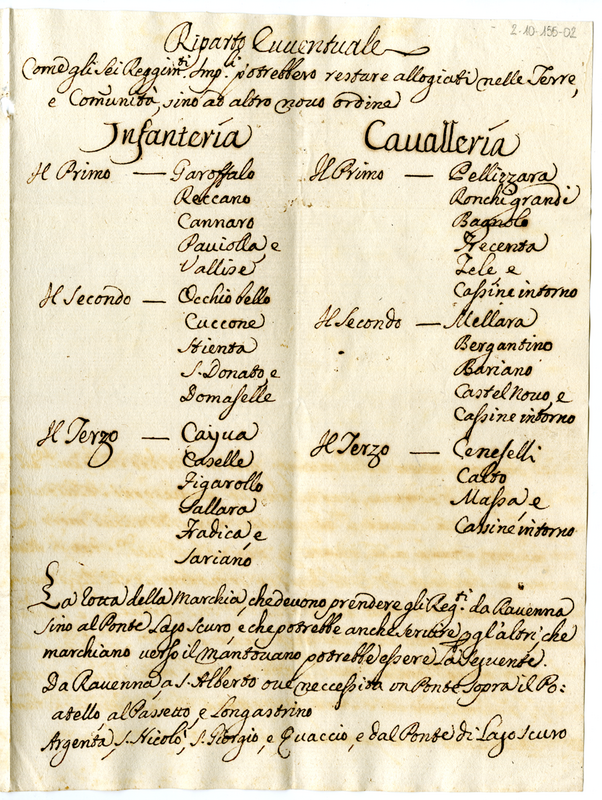 2-10-155-02
Riparto Euuentuale
Come gli Sei Reggim.ti Imp.i potrebbero restare allogiati nelle Terre,
e Comunità, sino ad altro nouo ordine
Infanteria
Il Primo — Garoffalo
Reccano
Cannaro
Pauiolla, e
Vallise
Il Secondo — Occhio bello
Cuccone
Stienta
S. Donato, e
Domaselle
Il Terzo —
Caselle
Figarollo
Sallara
Fradica e
Sariano
Cauallería
Il Primo — Pellizzara
Ronchi grandi
Bagnolo
Trecenta
Zele, e
Cassine intorno
Il Secondo — Mellara
Bergantino
Bariano
Castel Nouo, e
Cassine intorno
Il Terzo — Ceneselli
Calto
Massa e
Cassine intorno
La rotta della Marchia, che deuono prendere gli Reg.ti da Rauenna
sino al Ponte Lago Scuro e che potrebbe anche seruire p gl'altri che
marchiano uerso il Mantouano potrebbe essere la seguente.
Da Rauenna, a S. Alberto oue neccessita un Ponte sopra il Po:
atello al Passetto, e Longastrino
Argenta, S. Nicolò, S. Giorgio, e Quaccio, e dal Ponte di Lago scuro